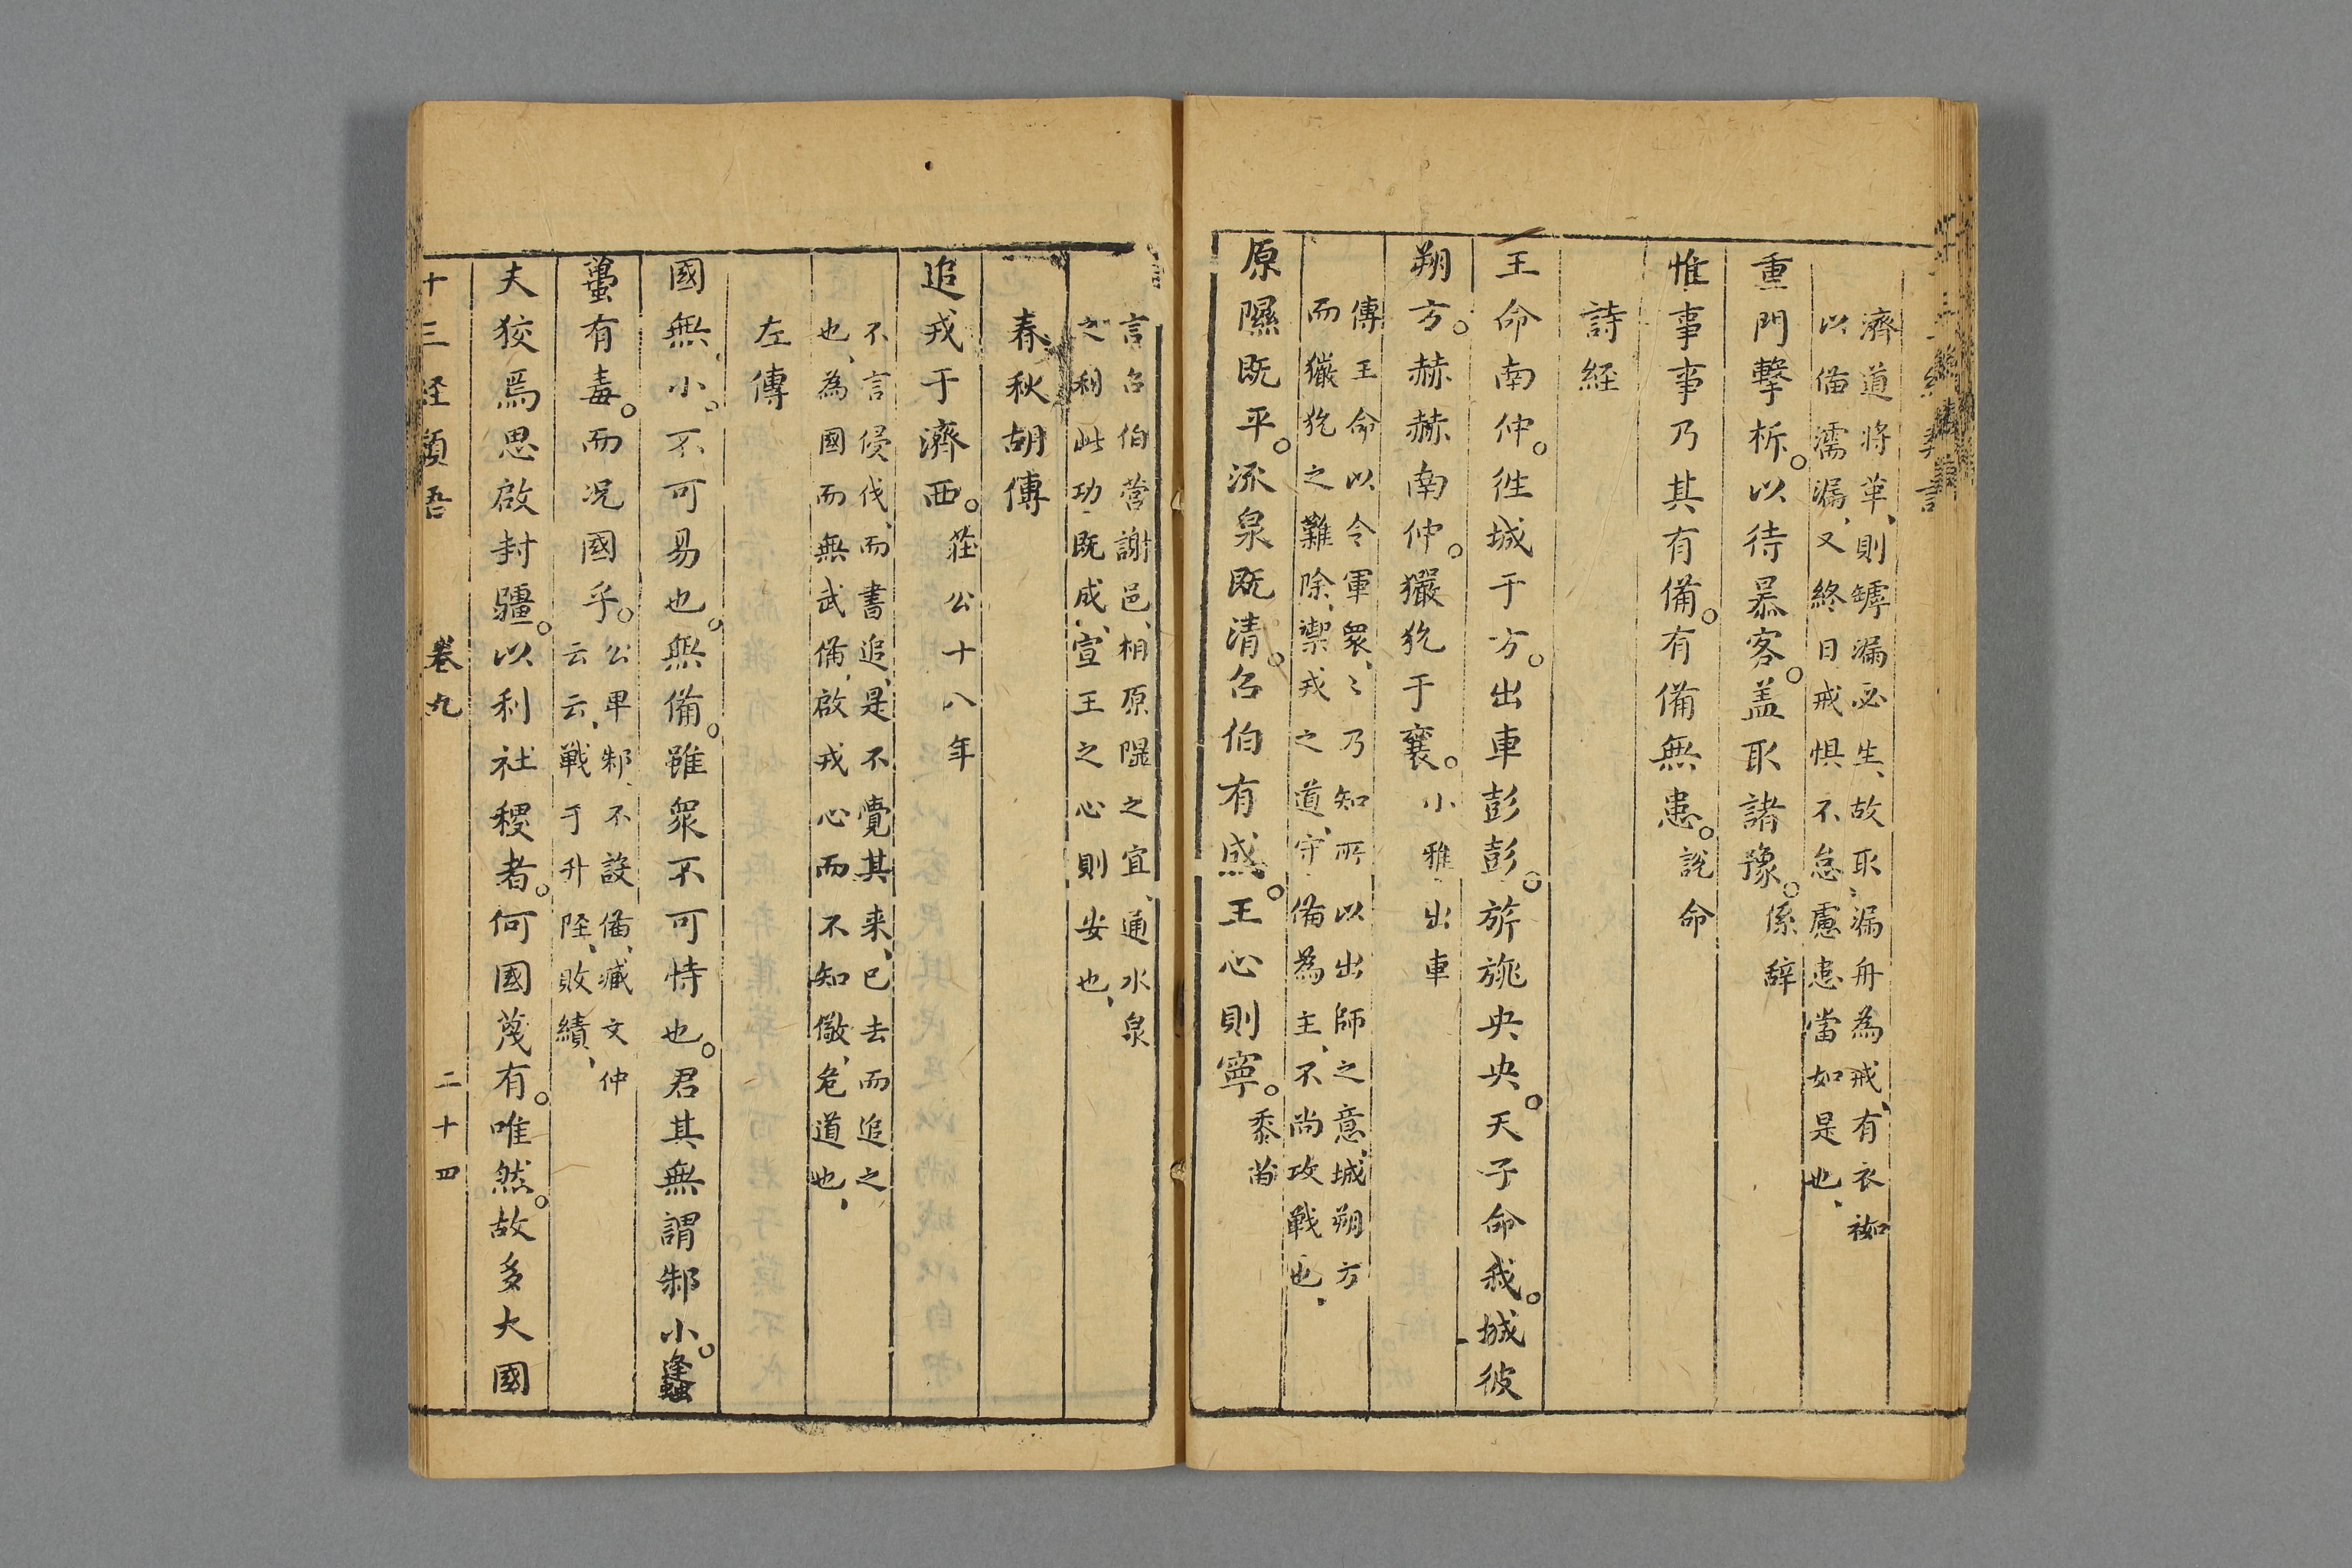 濟道將革、則罅漏必生、故取漏舟為戒、有衣袽
以備濡漏、又終日戒懼不怠慮患當如是也、
重門擊柝。以待暴客。盖取諸豫。係辞
惟事事乃其有備。有備無患。說命
詩経
王命南仲。徃城于方。出車彭彭。旂旐央央。天子命我。城彼
朔方。赫赫南仲。玁狁于襄。小雅出車
傳王命以令軍衆、〻乃知所以出師之意、城朔方
而玁狁之難除、禦戎之道、守備為主、不尚攻戰也、
原隰既平。泉既清。召伯有成。王心則寧。黍苗
言召伯營謝邑、相原隰之宜、通水泉
之利此功既成、宣王之心則安也、
春秋胡傳
追戎于濟西。莊公十八年
不言侵伐、而書追、是不覺其来、已去而追之
也、為國而無武備、啟戎心而不知儆、危道也、
左傳
國無小。不可易也。無備。雖衆不可恃也。君其無謂邾小。蠭
蠆有毒。而况國乎。公卑邾、不設備、臧文仲
云云、戰于升陘、敗績、
夫狡焉思啟封疆。以利社稷者。何國蔑有。唯然。故多大國
十三経類吾 卷九 二十四